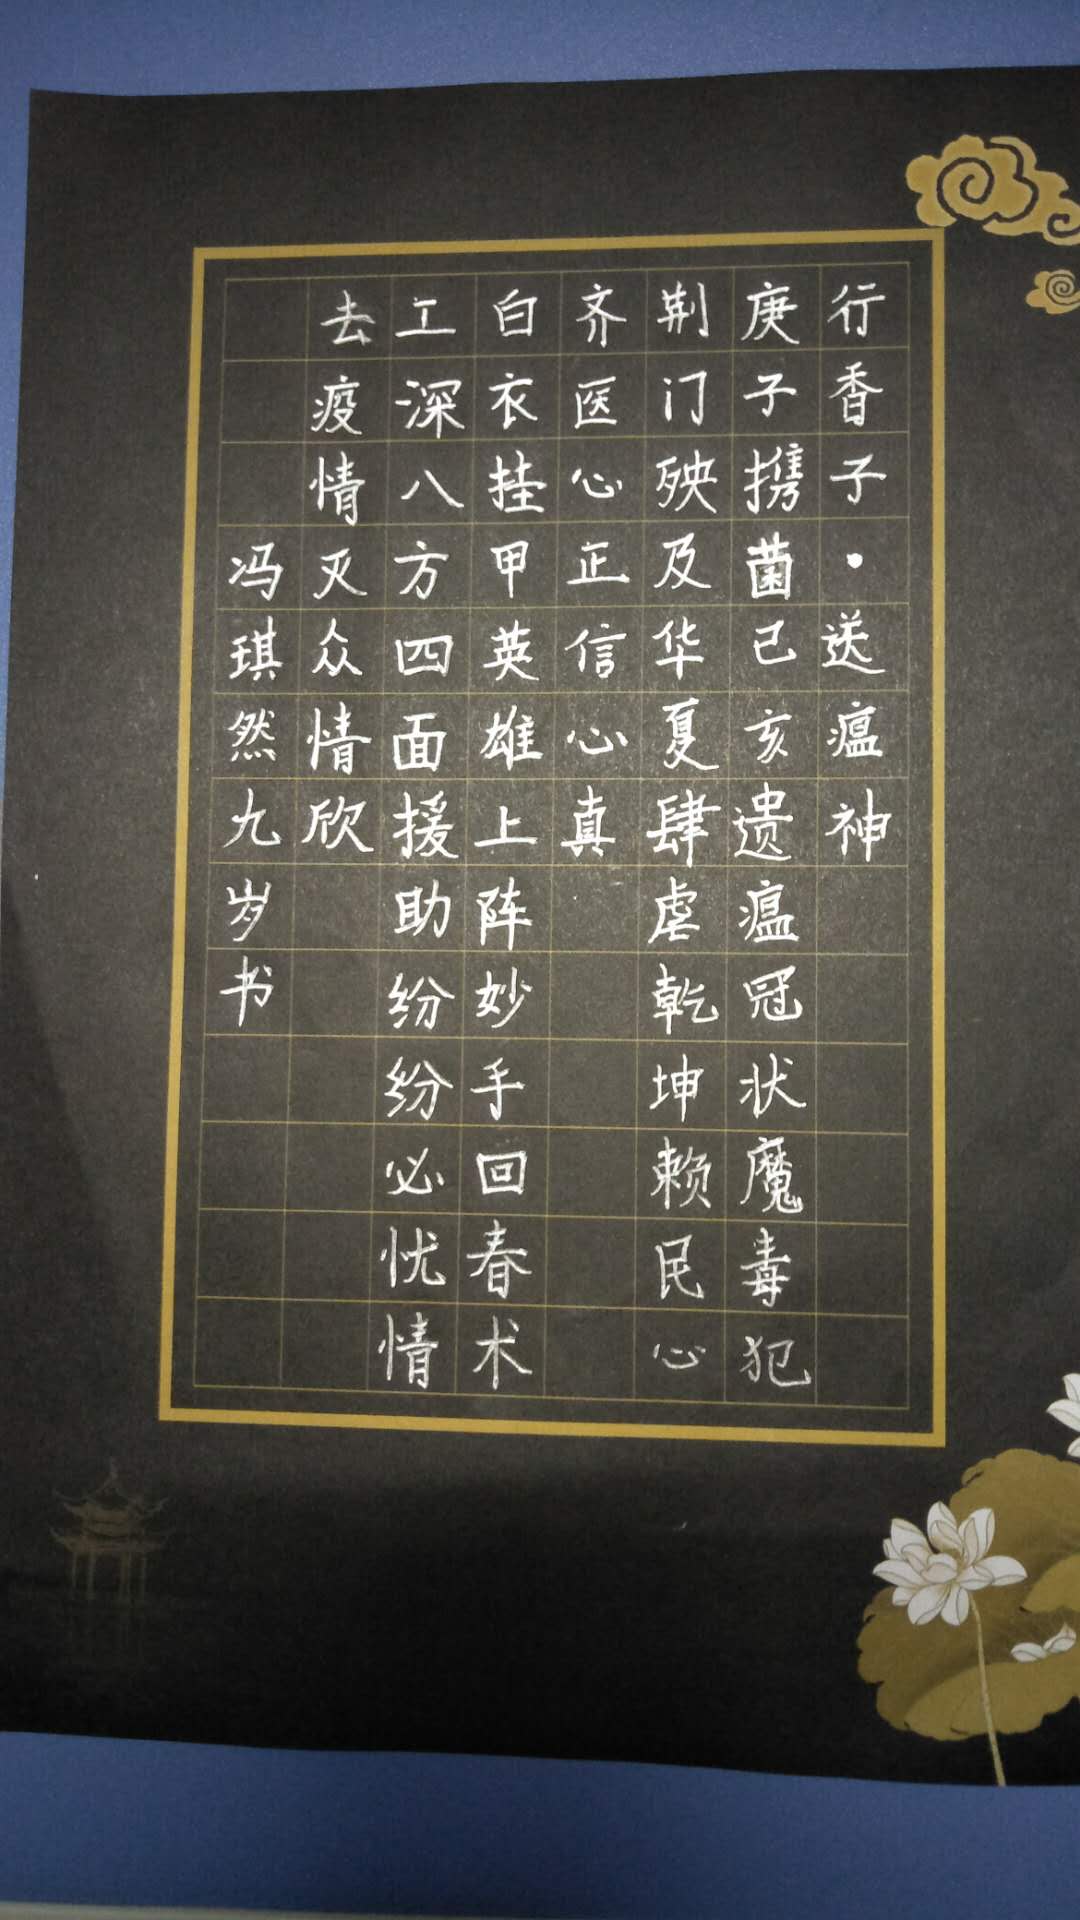 行香子·送瘟神
庚子携菌己亥遗瘟冠状魔毒犯
荆门殃及华夏肆虐乾坤赖民心
齐医心正信心真
白衣挂甲英雄上阵妙手回春术
工深八方四面援助纷纷必忧情
去疫情灭众情欣
冯琪然九岁书